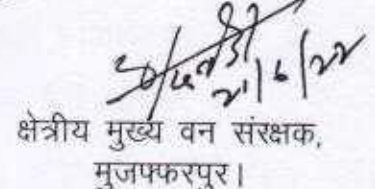 21/6/22
क्षेत्रीय मुख्य वन संरक्षक,
मुजफ्फरपुर।